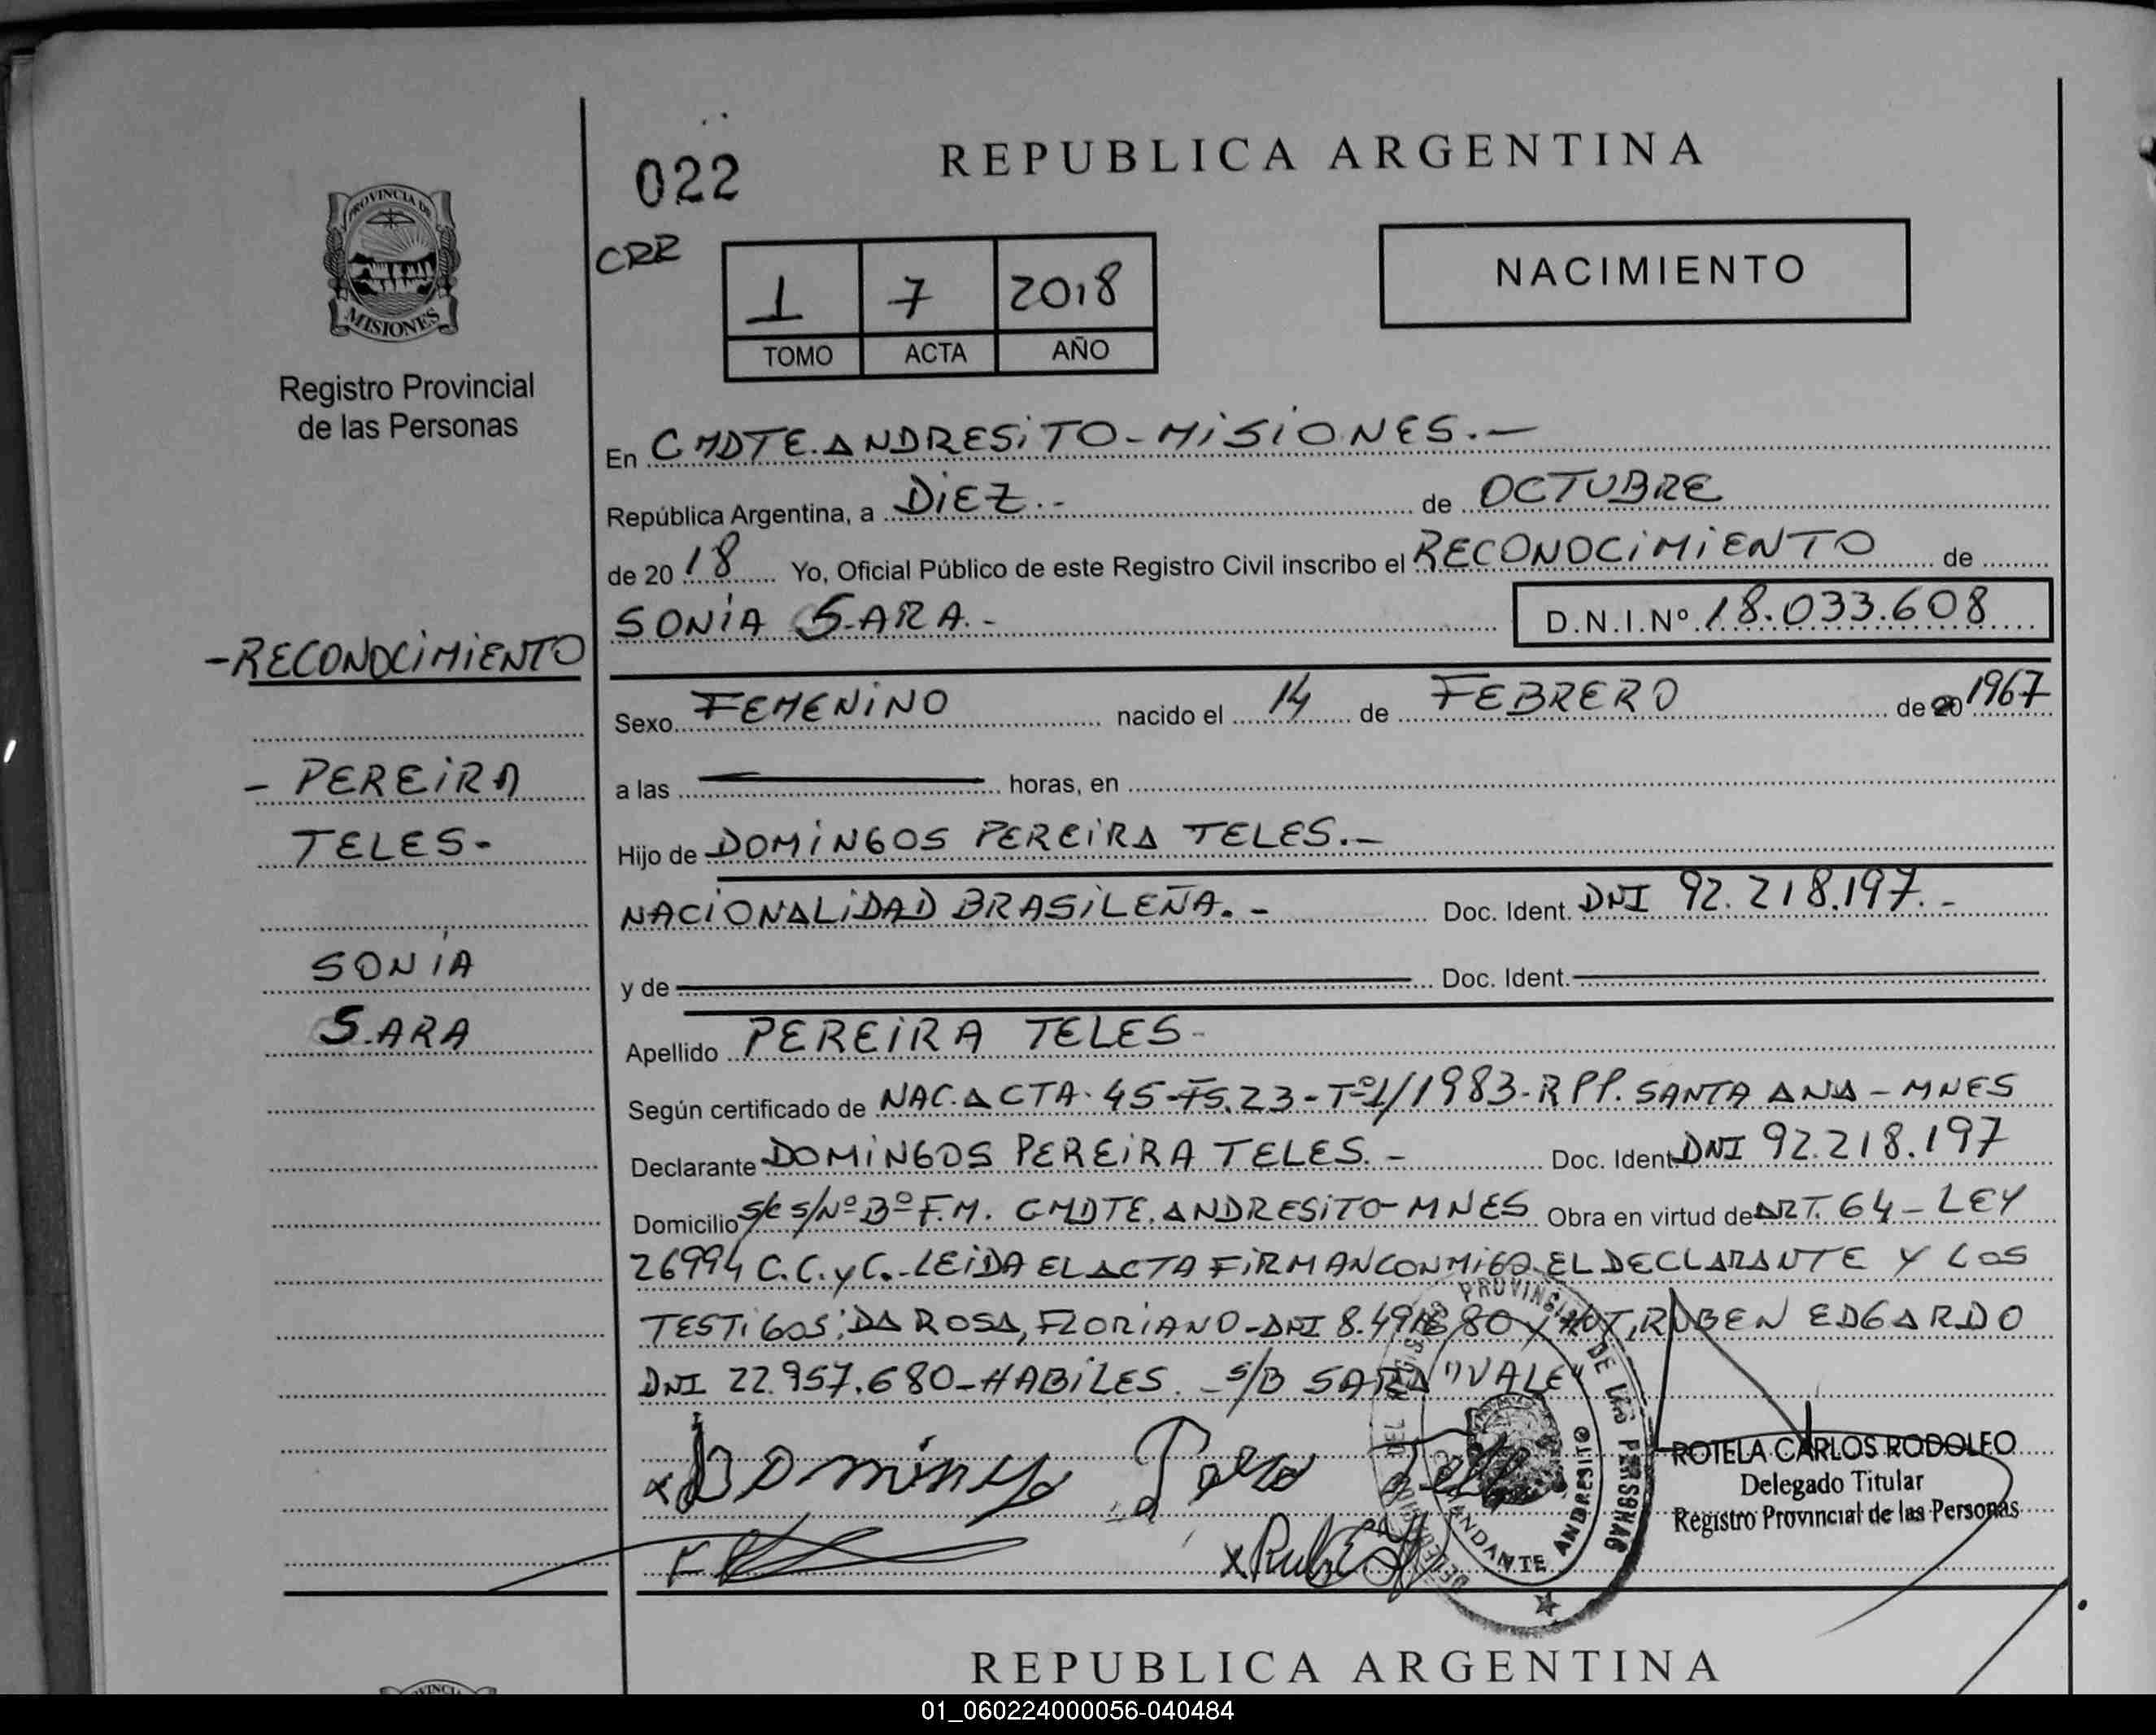 PROVINCIA DE
MISIONES
Registro Provincial
de las Personas
-RECONOCIMIENTO
- PEREIRA
TELES-
SONIA
SARA
022
REPUBLICA ARGENTINA
CRR
1 7 2018
TOMO ACTA AÑO
NACIMIENTO
En CMDTE.ANDRESITO-MISIONES.-
República Argentina, a DIEZ.- de OCTUBRE
de 20 18 Yo, Oficial Público de este Registro Civil inscribo el RECONOCIMIENTO de
SONIA SARA.- D.N.I.Nº 18.033.608
Sexo FEMENINO nacido el 14 de FEBRERO de 20 1967
a las horas, en
Hijo de DOMINGOS PEREIRA TELES.-
NACIONALIDAD BRASILEÑA.- Doc. Ident. DNI 92.218.197.-
y de Doc. Ident.
Apellido PEREIRA TELES-
Según certificado de NAC.ACTA.45-FS.23-Tº1/1983-RPP.SANTA ANA-MNES
Declarante DOMINGOS PEREIRA TELES.- Doc. Ident DNI 92.218.197
Domicilio S/C S/Nº Bº F.M. CMDTE.ANDRESITO-MNES Obra en virtud de ART.64-LEY
26994 C.C.yC.-LEIDA EL ACTA FIRMAN CONMIGO EL DECLARANTE Y LOS
TESTIGOS: DA ROSA, FLORIANO-DNI Y RUBEN EDGARDO
DNI 22.957.680-HABILES.-S/B SARA "VALE"
PROVINCIAL DE LAS PERSONAS
ANDRESITO
ROTELA CARLOS RODOLFO
Delegado Titular
Registro Provincial de las Personas
REPUBLICA ARGENTINA
01_060224000056-040484